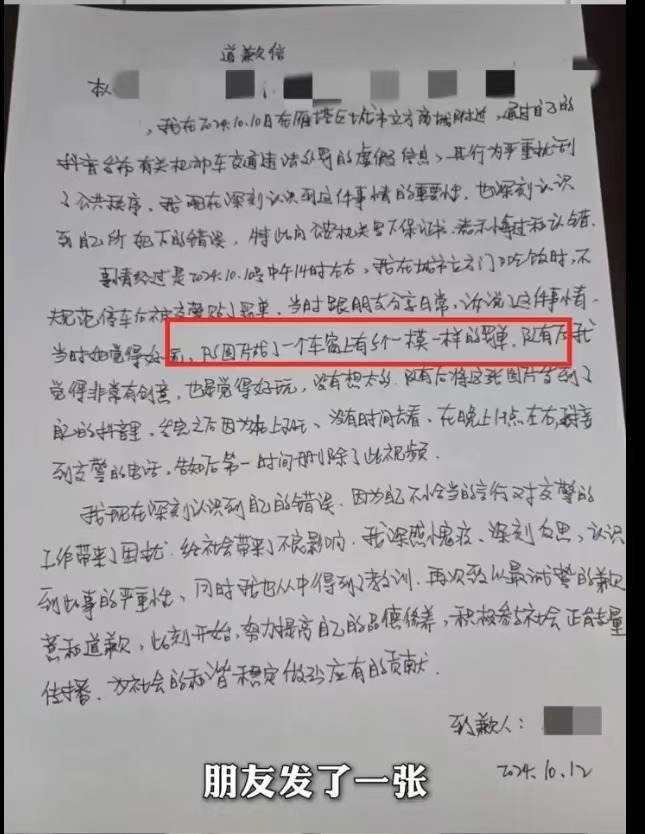 道歉信
本人
，我在2024.10.10日在雁塔区城市立方商场附近，通过自己的
抖音发布有关机动车交通违法处罚的虚假信息，其行为严重扰乱
了公共秩序，我现在深刻认识到这件事情的重要性，也深刻认识
到自己所犯下的错误，特此向公安机关写下保证书，表示悔过和认错。
事情经过是2024.10.10号中午14时左右，我在城市立方门口吃饭时，不
规范停车后被交警贴了罚单，当时跟朋友分享日常，诉说了这件事情，
当时她觉得好
，PS图片给了一个车窗上有5个一模一样的罚单，
我
觉得非常有创意，也是觉得好玩，没有想太多，
后将这张图片发到了
自己的抖音里，发完之后因为晚上
、没有时间去看、在晚上19点左右，接
到交警的电话，告知后第一时间删除了此视频。
我现在深刻认识到自己的错误，因为自己不恰当的言行对交警的
工作带来了困扰，给社会带来了不良影响，我深感愧疚、深刻自思，认识
到此事的严重性、同时我也从中得到了教训，再次致以最诚挚的歉
意和道歉，此刻开始，努力提高自己的品德修养，积极参与社会正能量
传播，为社会的和谐稳定做出应有的贡献。
致歉人：
2024.10.12
朋友发了一张